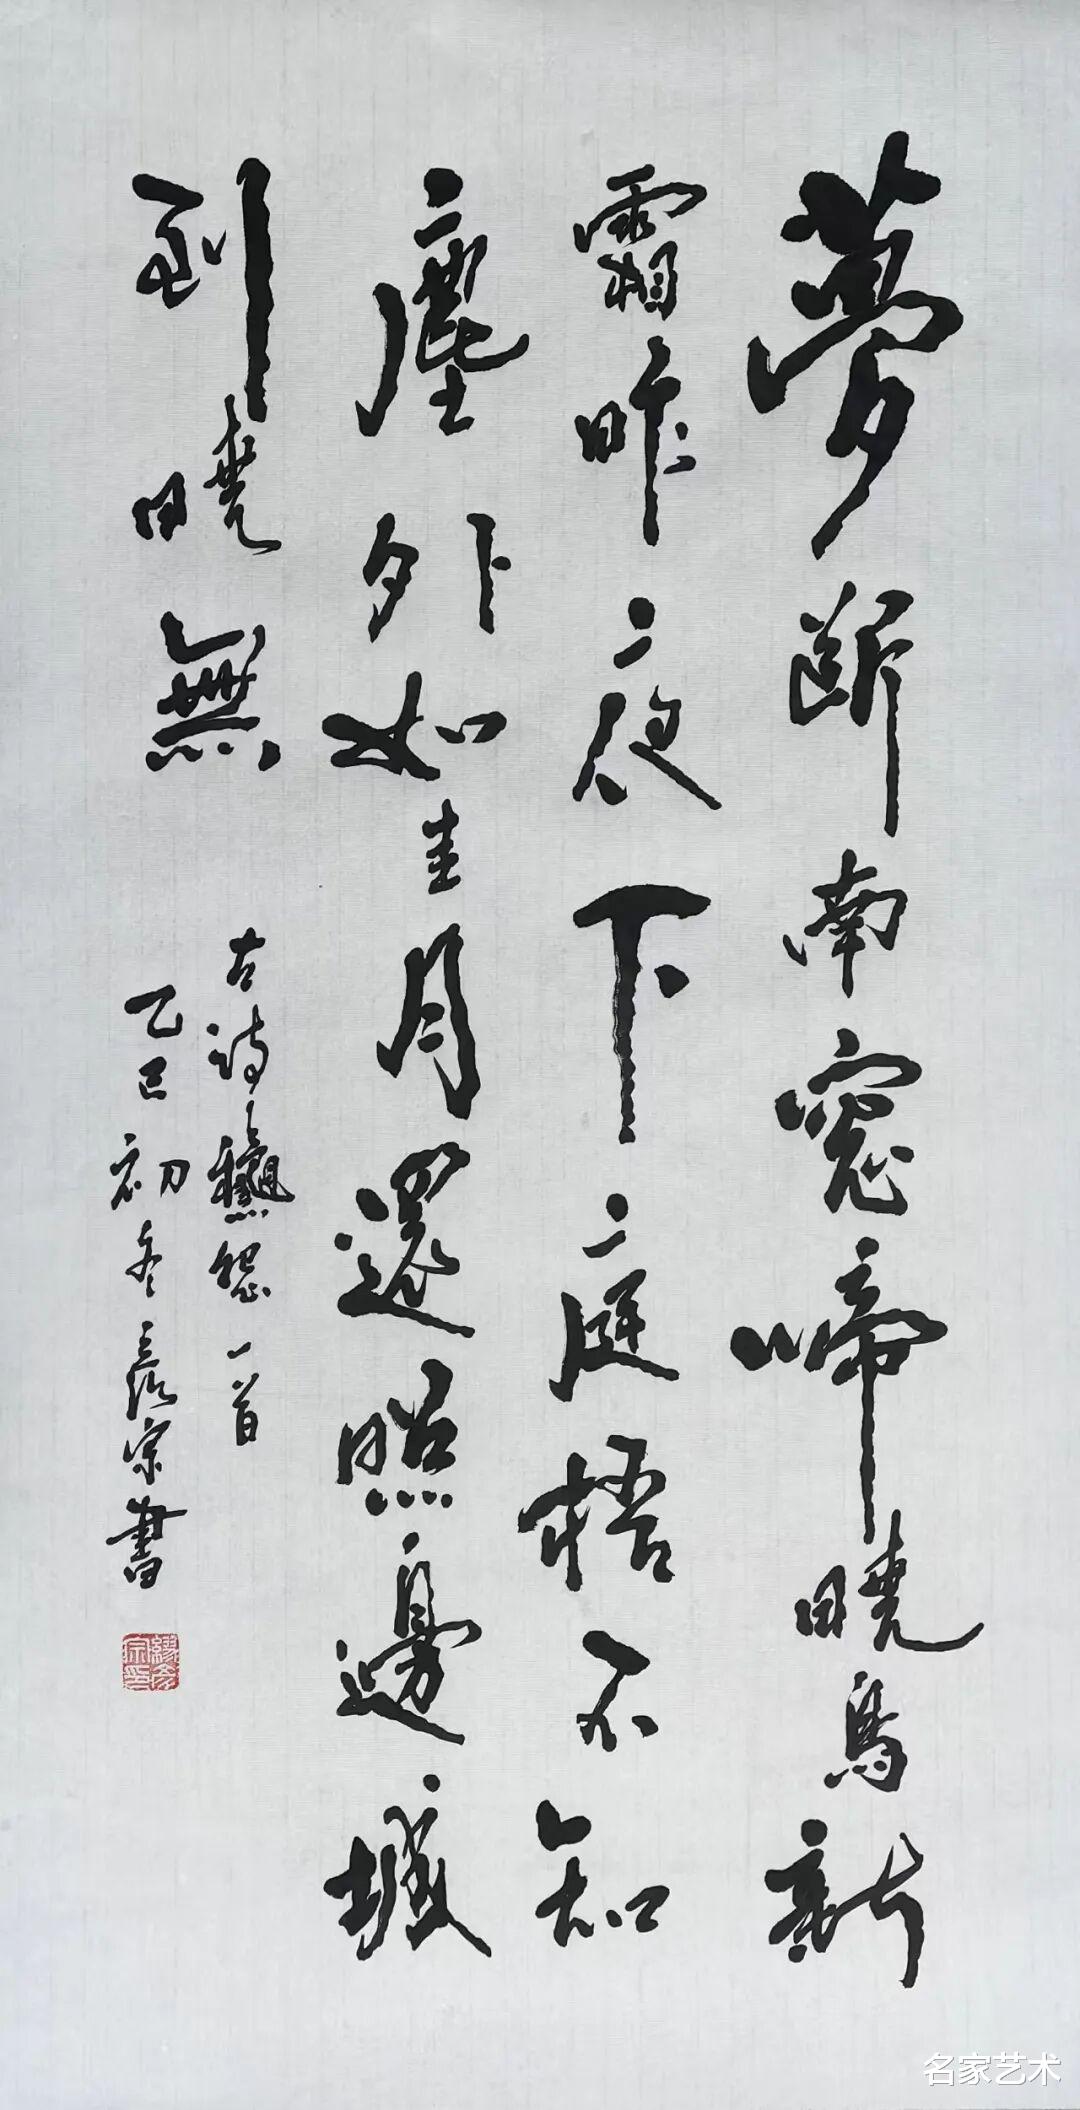 夢斷南窓啼曉烏新
霜昨夜下庭梧不知
塵外如圭月還照邊城
到曉無
古詩龝怨一首
乙巳初冬彦宗書
繆彦宗印
名家艺术